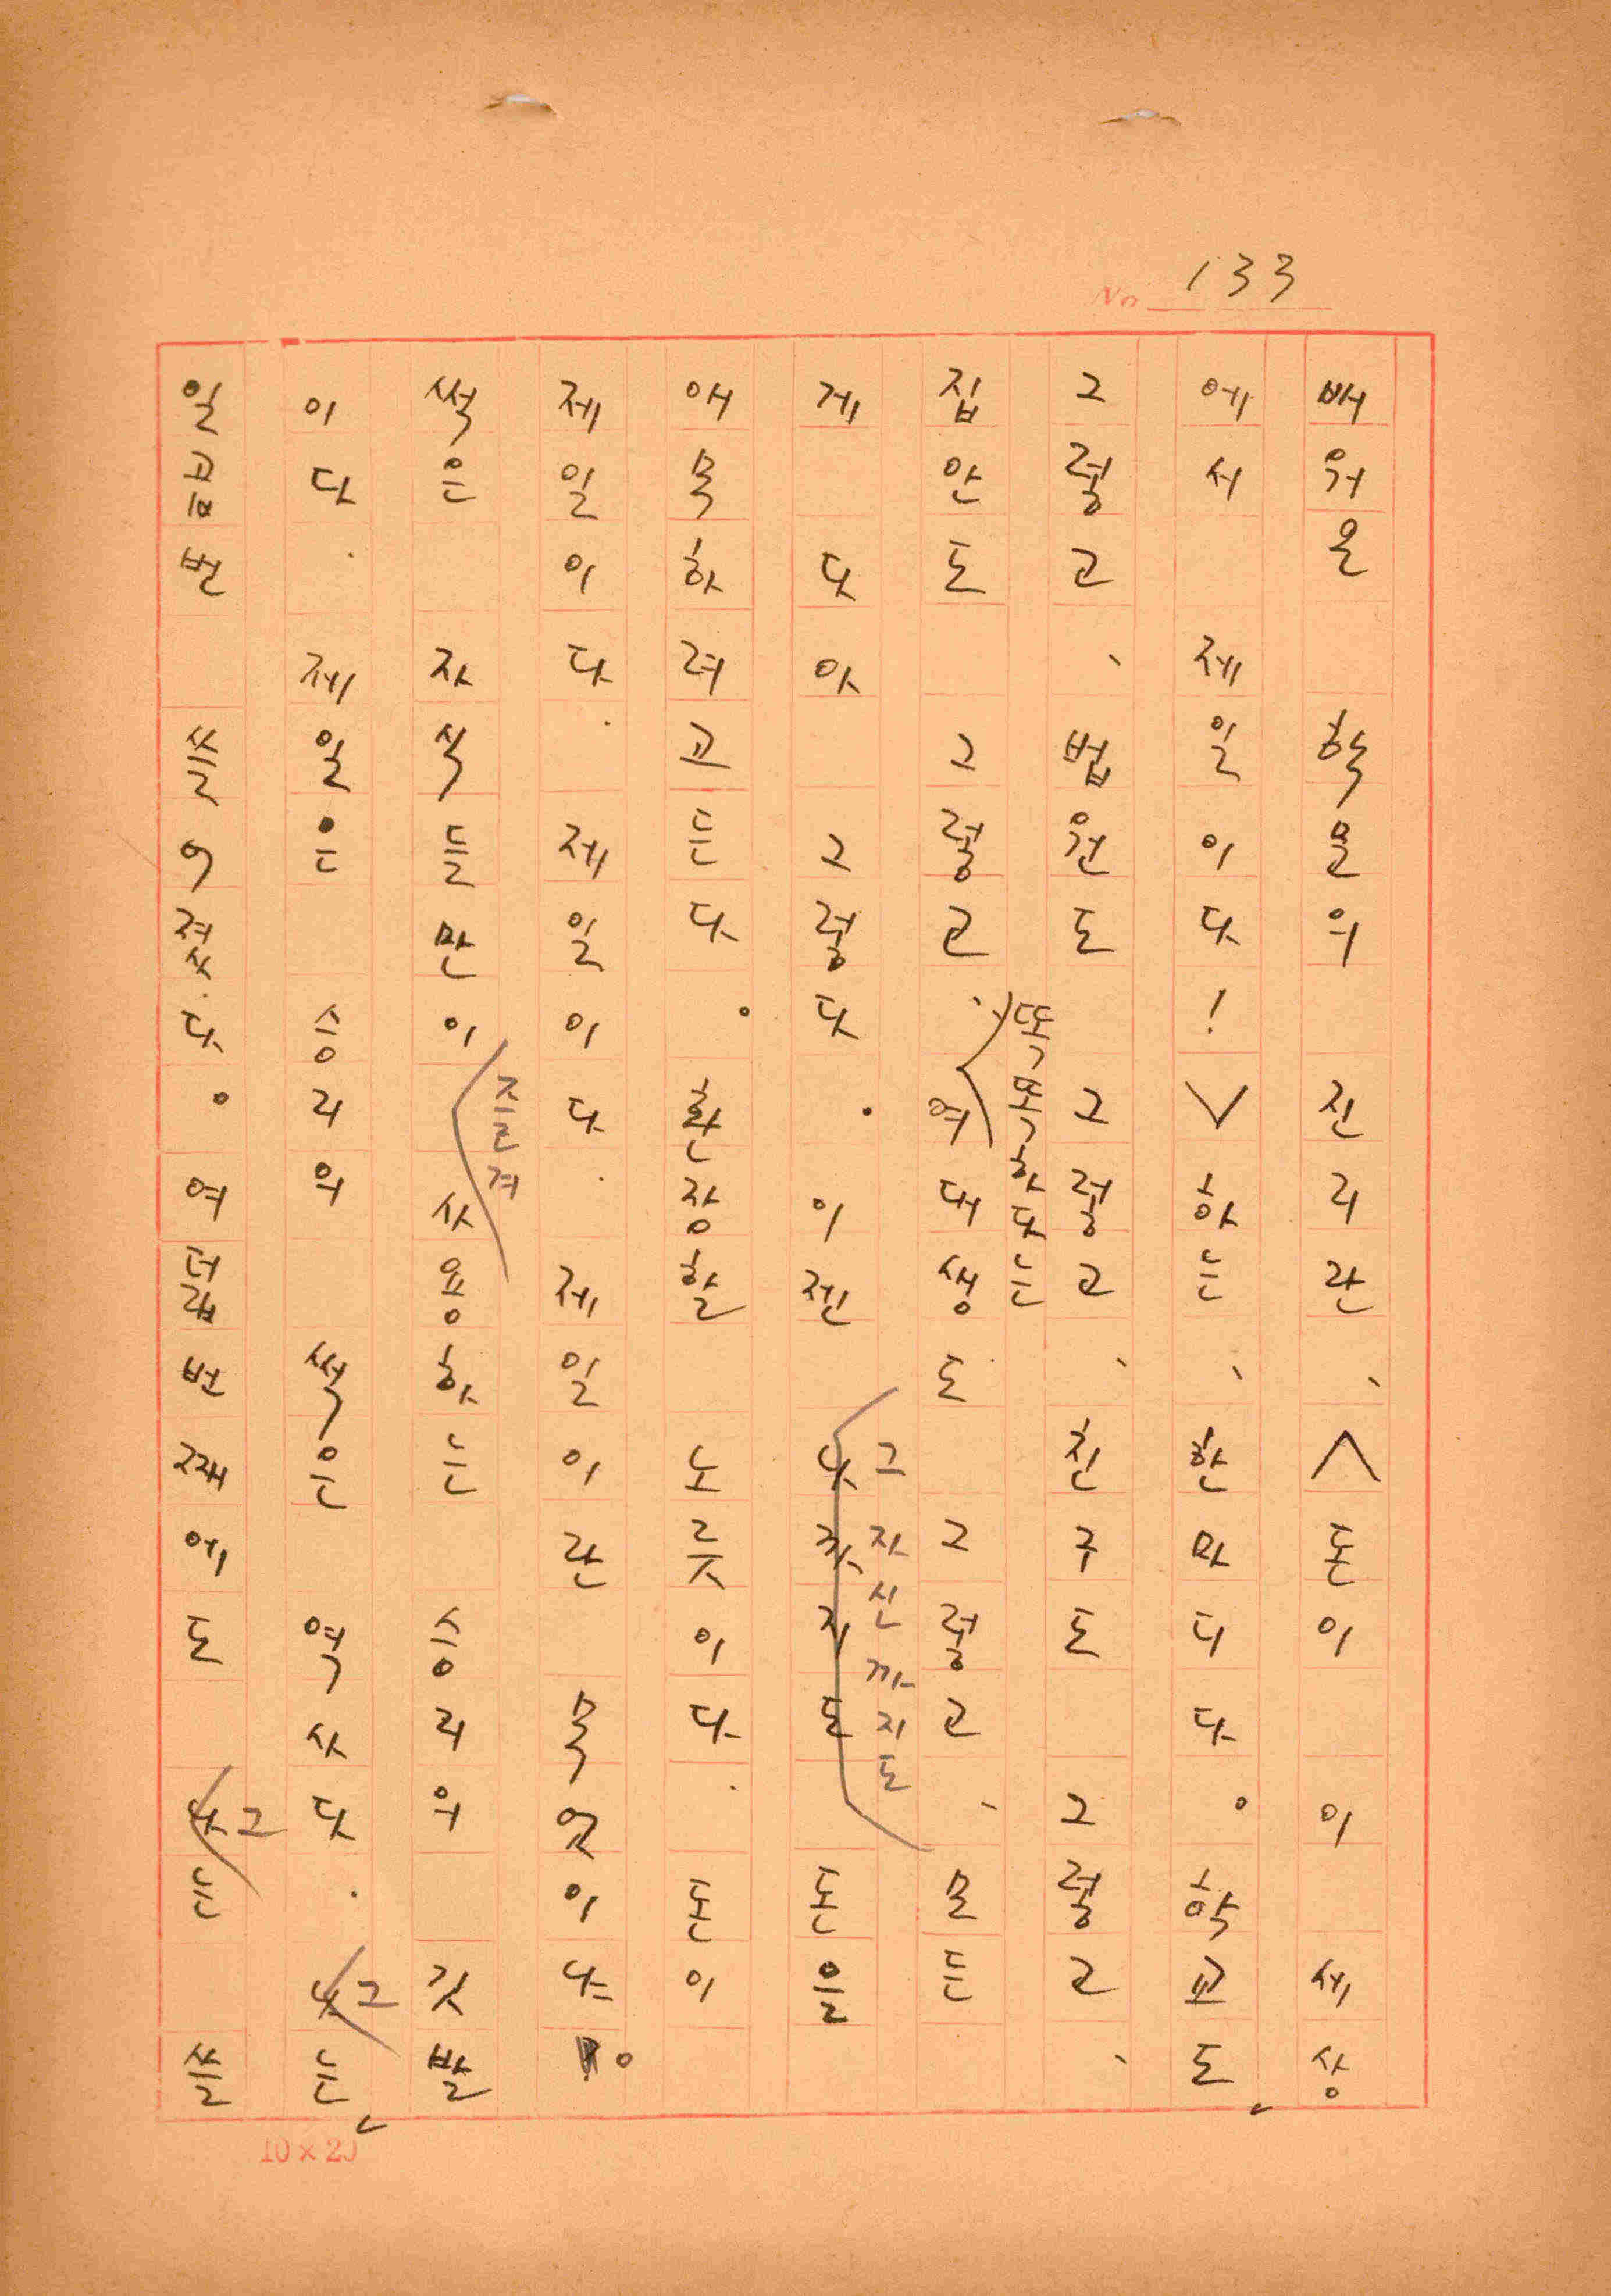 No 133
배워온 학문의 진리란、∧돈이 이 세상
에서 제일이다!∨하는、한마디다。학교도、
그렇고、법원도 그렇고、친구도 그렇고、
똑똑하다는
집안도 그렇고、여대생도 그렇고、모든
그 자신까지도
게 다아 그렇다. 이젠 나까지도 돈을
환장할 노릇이다. 돈이
제일이다. 제일이다. 제일이란
즐겨
썩은 자식들만이 사용하는 승리의 깃발
그
이다. 제일은 승리의 썩은 역사다. 나는、
그
일곱번 쓸어졌다。여덟번째에도 나는 쓸
10×20